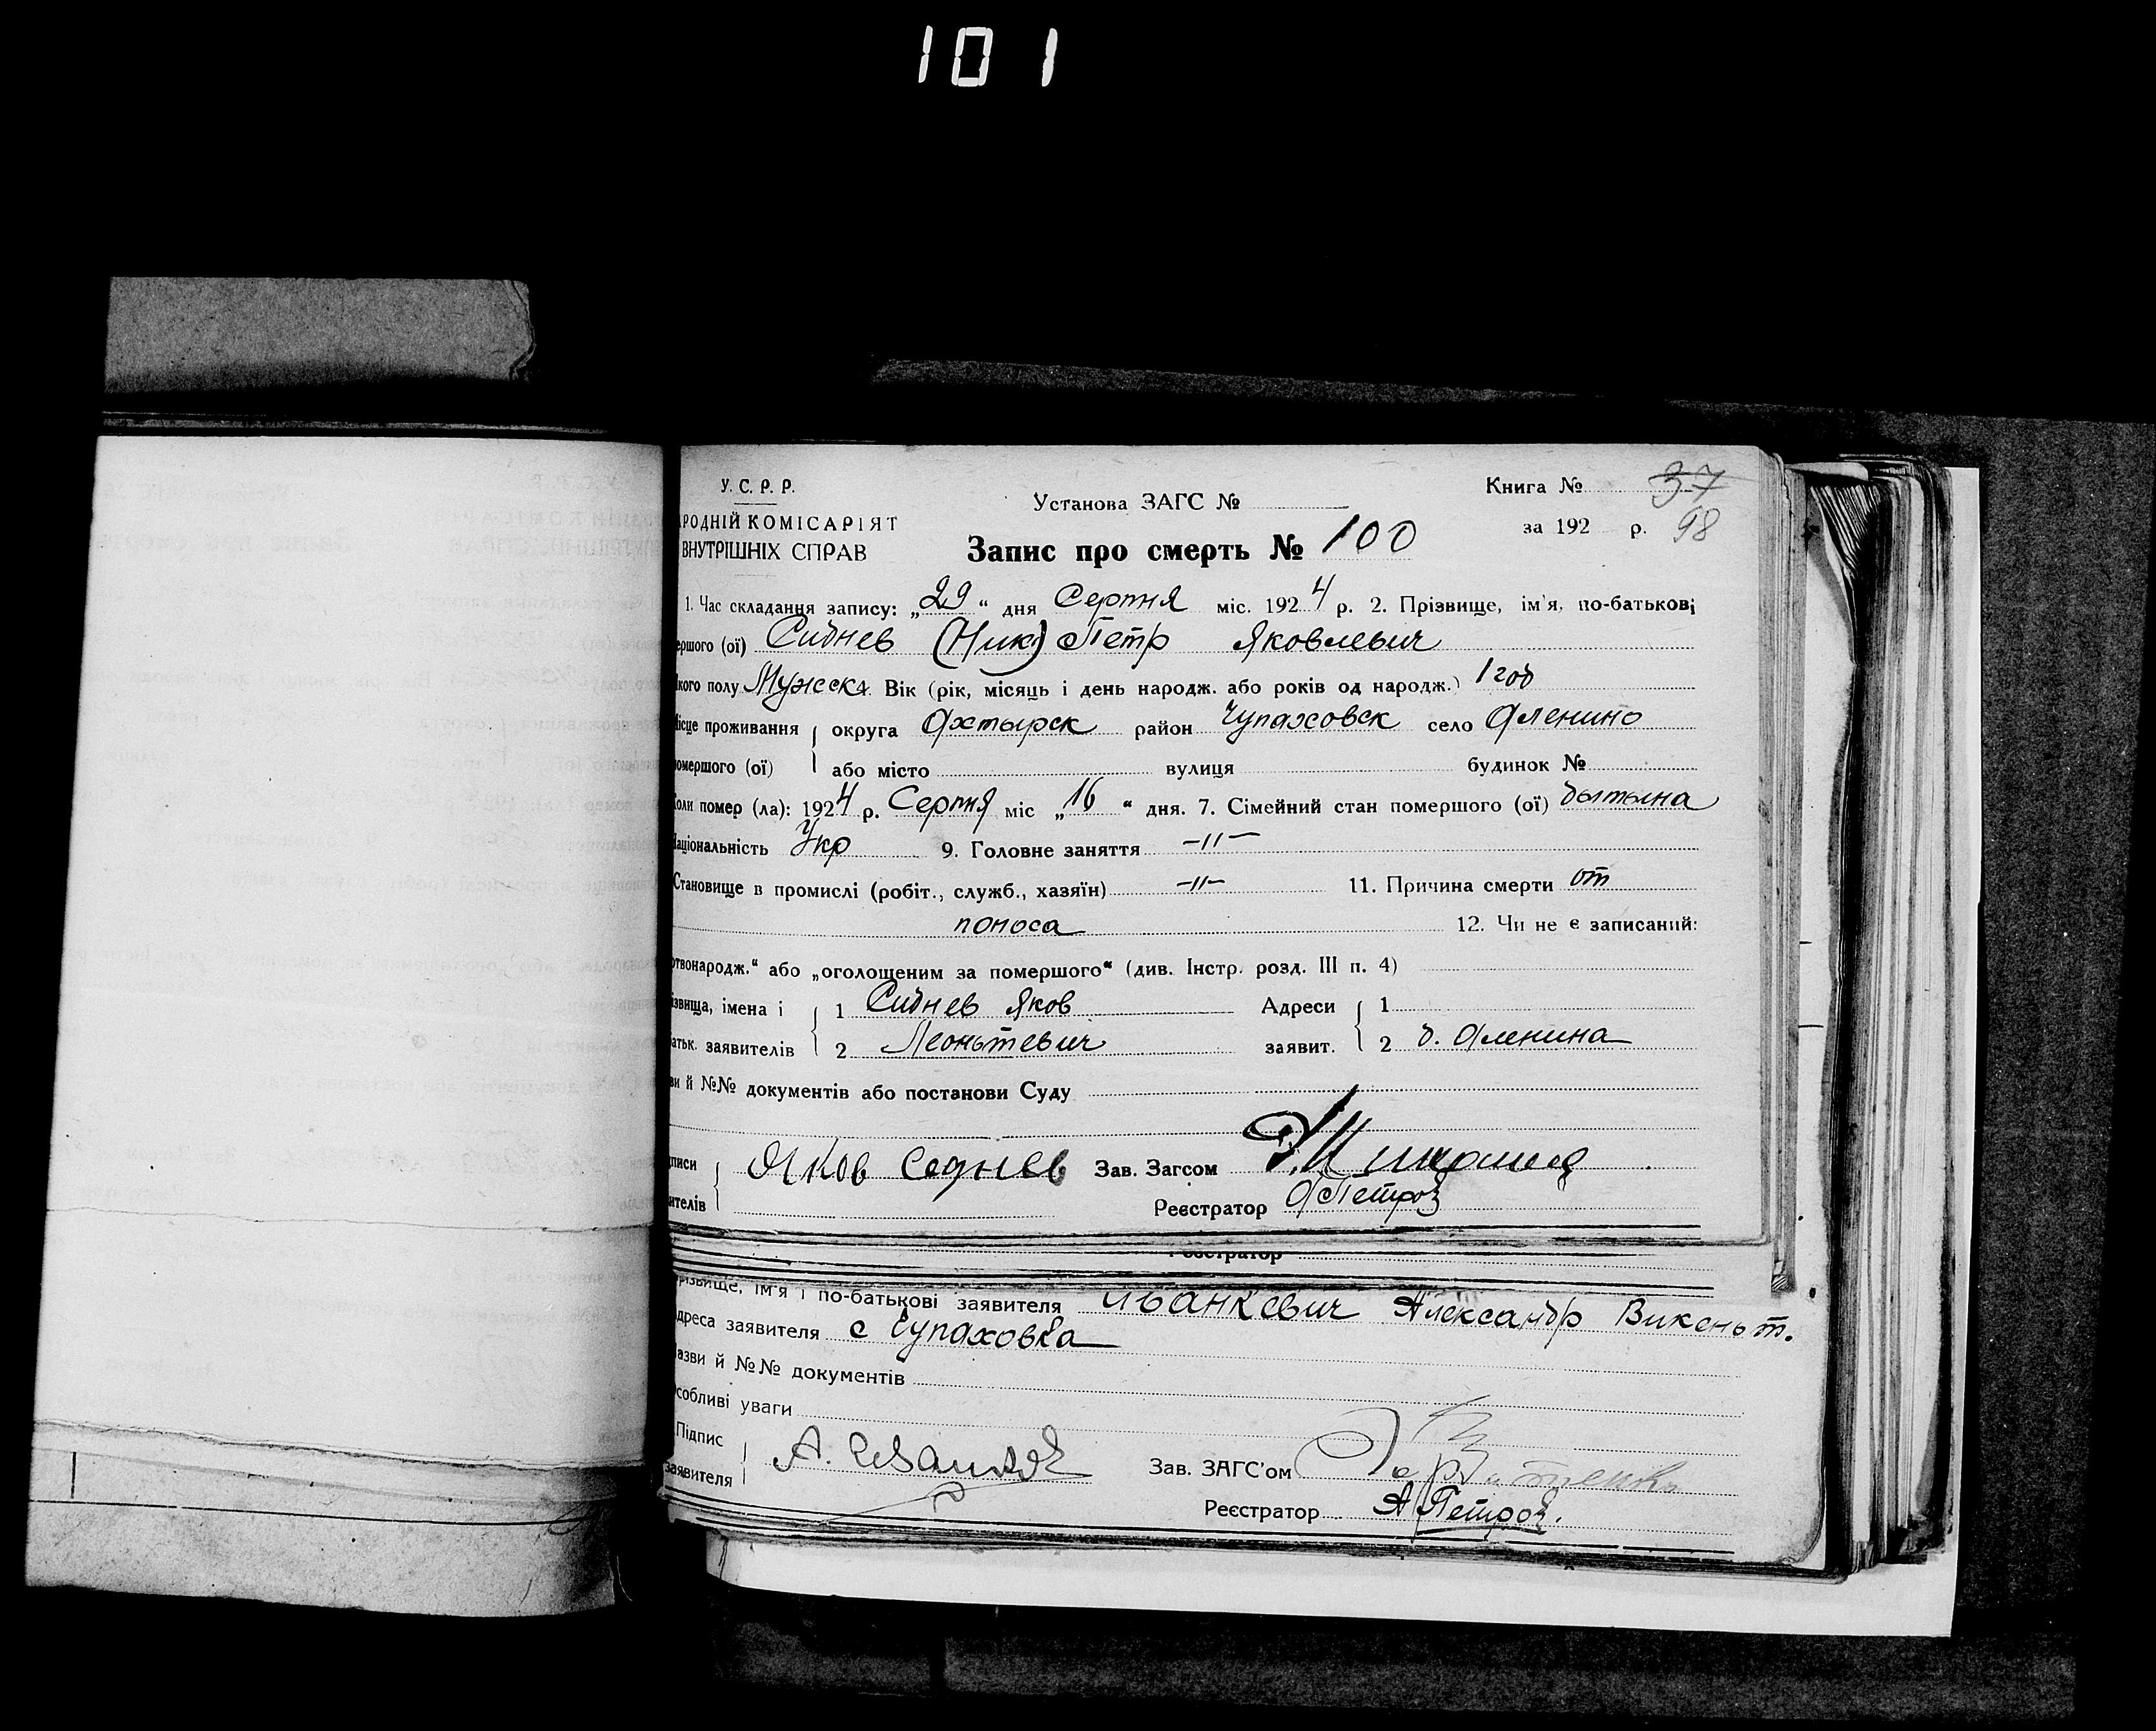 101
У. С. Р. Р.
РОДНІЙ КОМІСАРІЯТ
ВНУТРІШНІХ СПРАВ
Установа ЗАГС №
Запис про смерть № 100
Книга № 37
за 192 р. 98
1. Час складання запису: „29“ дня Серпня міс. 1924 р. 2. Прізвище, ім'я, по-батькові
ершого (ої) Сиднев (Ник) Петр Яковлевич
якого полу Мужеска. Вік (рік, місяць і день народж. або років од народж.) 1 год
Місце проживання округа Ахтырск район Чупаховск село Аленино
помершого (ої) або місто вулиця будинок №
Коли помер (ла): 1924 р. Серпня міс „16“ дня. 7. Сімейний стан помершого (ої) дытына
Національність Укр 9. Головне заняття -〃-
Становище в промислі (робіт., служб., хазяїн) -〃- 11. Причина смерти от
поноса 12. Чи не є записаний:
ртвонародж.“ або „оголощеним за помершого“ (див. Інстр. розд. III п. 4)
ізвища, імена і 1 Сиднев Яков Адреси 1
батьк. заявителів 2 Леоньтевич заявит. 2 д. Аленина
ви й №№ документів або постанови Суду
дписи ЯковСеднев Зав. Загсом
вителів Реєстратор А Петров
Реєстратор
різвище, ім'я і по-батькові заявителя Иванкевич Александр Викеньт.
дреса заявителя с Чупаховка
азви й №№ документів
собливі уваги
Підпис
заявителя А. Иванкев Зав. ЗАГС'ом
Реєстратор А Петров.